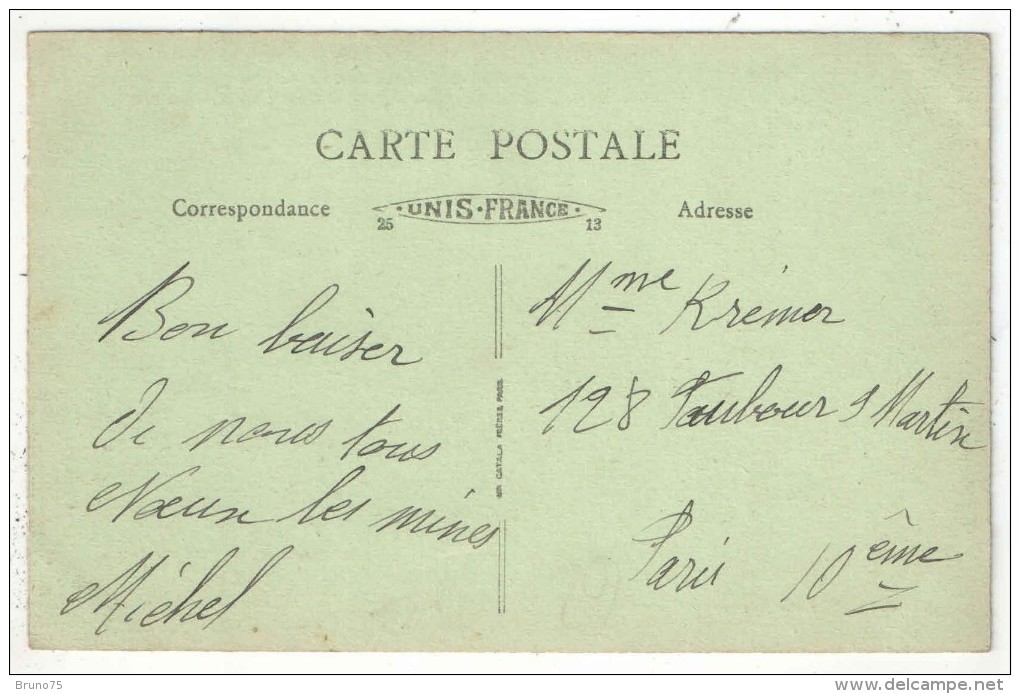 CARTE POSTALE
Correspondance
·UNIS·FRANCE·
25 13
Adresse
Bon baiser
de nous tous
Nœux les mines
Michel
IMP. CATALA FRÈRES, PARIS
Mme Krémer
128 Faubour S Martin
Paris 10ème
Bruno75
delcampe.net